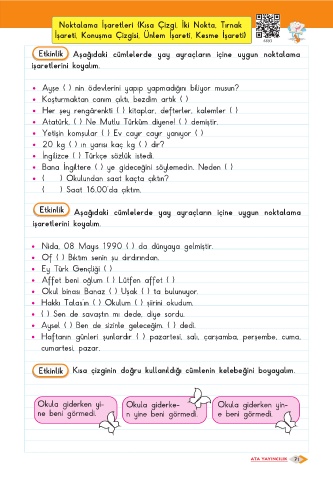 Noktalama İşaretleri (Kısa Çizgi, İki Nokta, Tırnak
İşareti, Konuşma Çizgisi, Ünlem İşareti, Kesme İşareti)
Etkinlik Aşağıdaki cümlelerde yay ayraçların içine uygun noktalama
işaretlerini koyalım.
• Ayşe ( ) nin ödevlerini yapıp yapmadığını biliyor musun?
• Koşturmaktan canım çıktı, bezdim artık ( )
• Her şey rengârenkti ( ) kitaplar, defterler, kalemler ( )
• Atatürk, ( ) Ne Mutlu Türküm diyene! ( ) demiştir.
• Yetişin komşular ( ) Ev cayır cayır yanıyor ( )
• 20 kg ( ) ın yarısı kaç kg ( ) dır?
• İngilizce ( ) Türkçe sözlük istedi.
• Bana İngiltere ( ) ye gideceğini söylemedin. Neden ( )
• ( ) Okulundan saat kaçta çıktın?
( ) Saat 16.00'da çıktım.
Etkinlik Aşağıdaki cümlelerde yay ayraçların içine uygun noktalama
işaretlerini koyalım.
• Nida, 08 Mayıs 1990 ( ) da dünyaya gelmiştir.
• Of ( ) Bıktım senin şu dırdırından.
• Ey Türk Gençliği ( )
• Affet beni oğlum ( ) Lütfen affet ( )
• Okul binası Banaz ( ) Uşak ( ) ta bulunuyor.
• Hakkı Talas'ın ( ) Okulum ( ) şiirini okudum.
• ( ) Sen de savaştın mı dede, diye sordu.
• Aysel ( ) Ben de sizinle geleceğim. ( ) dedi.
• Haftanın günleri şunlardır ( ) pazartesi, salı, çarşamba, perşembe, cuma,
cumartesi, pazar.
Etkinlik Kısa çizginin doğru kullanıldığı cümlenin kelebeğini boyayalım.
Okula giderken yi-
ne beni görmedi.
Okula giderke-
n yine beni görmedi.
Okula giderken yin-
e beni görmedi.
ATA YAYINCILIK 21